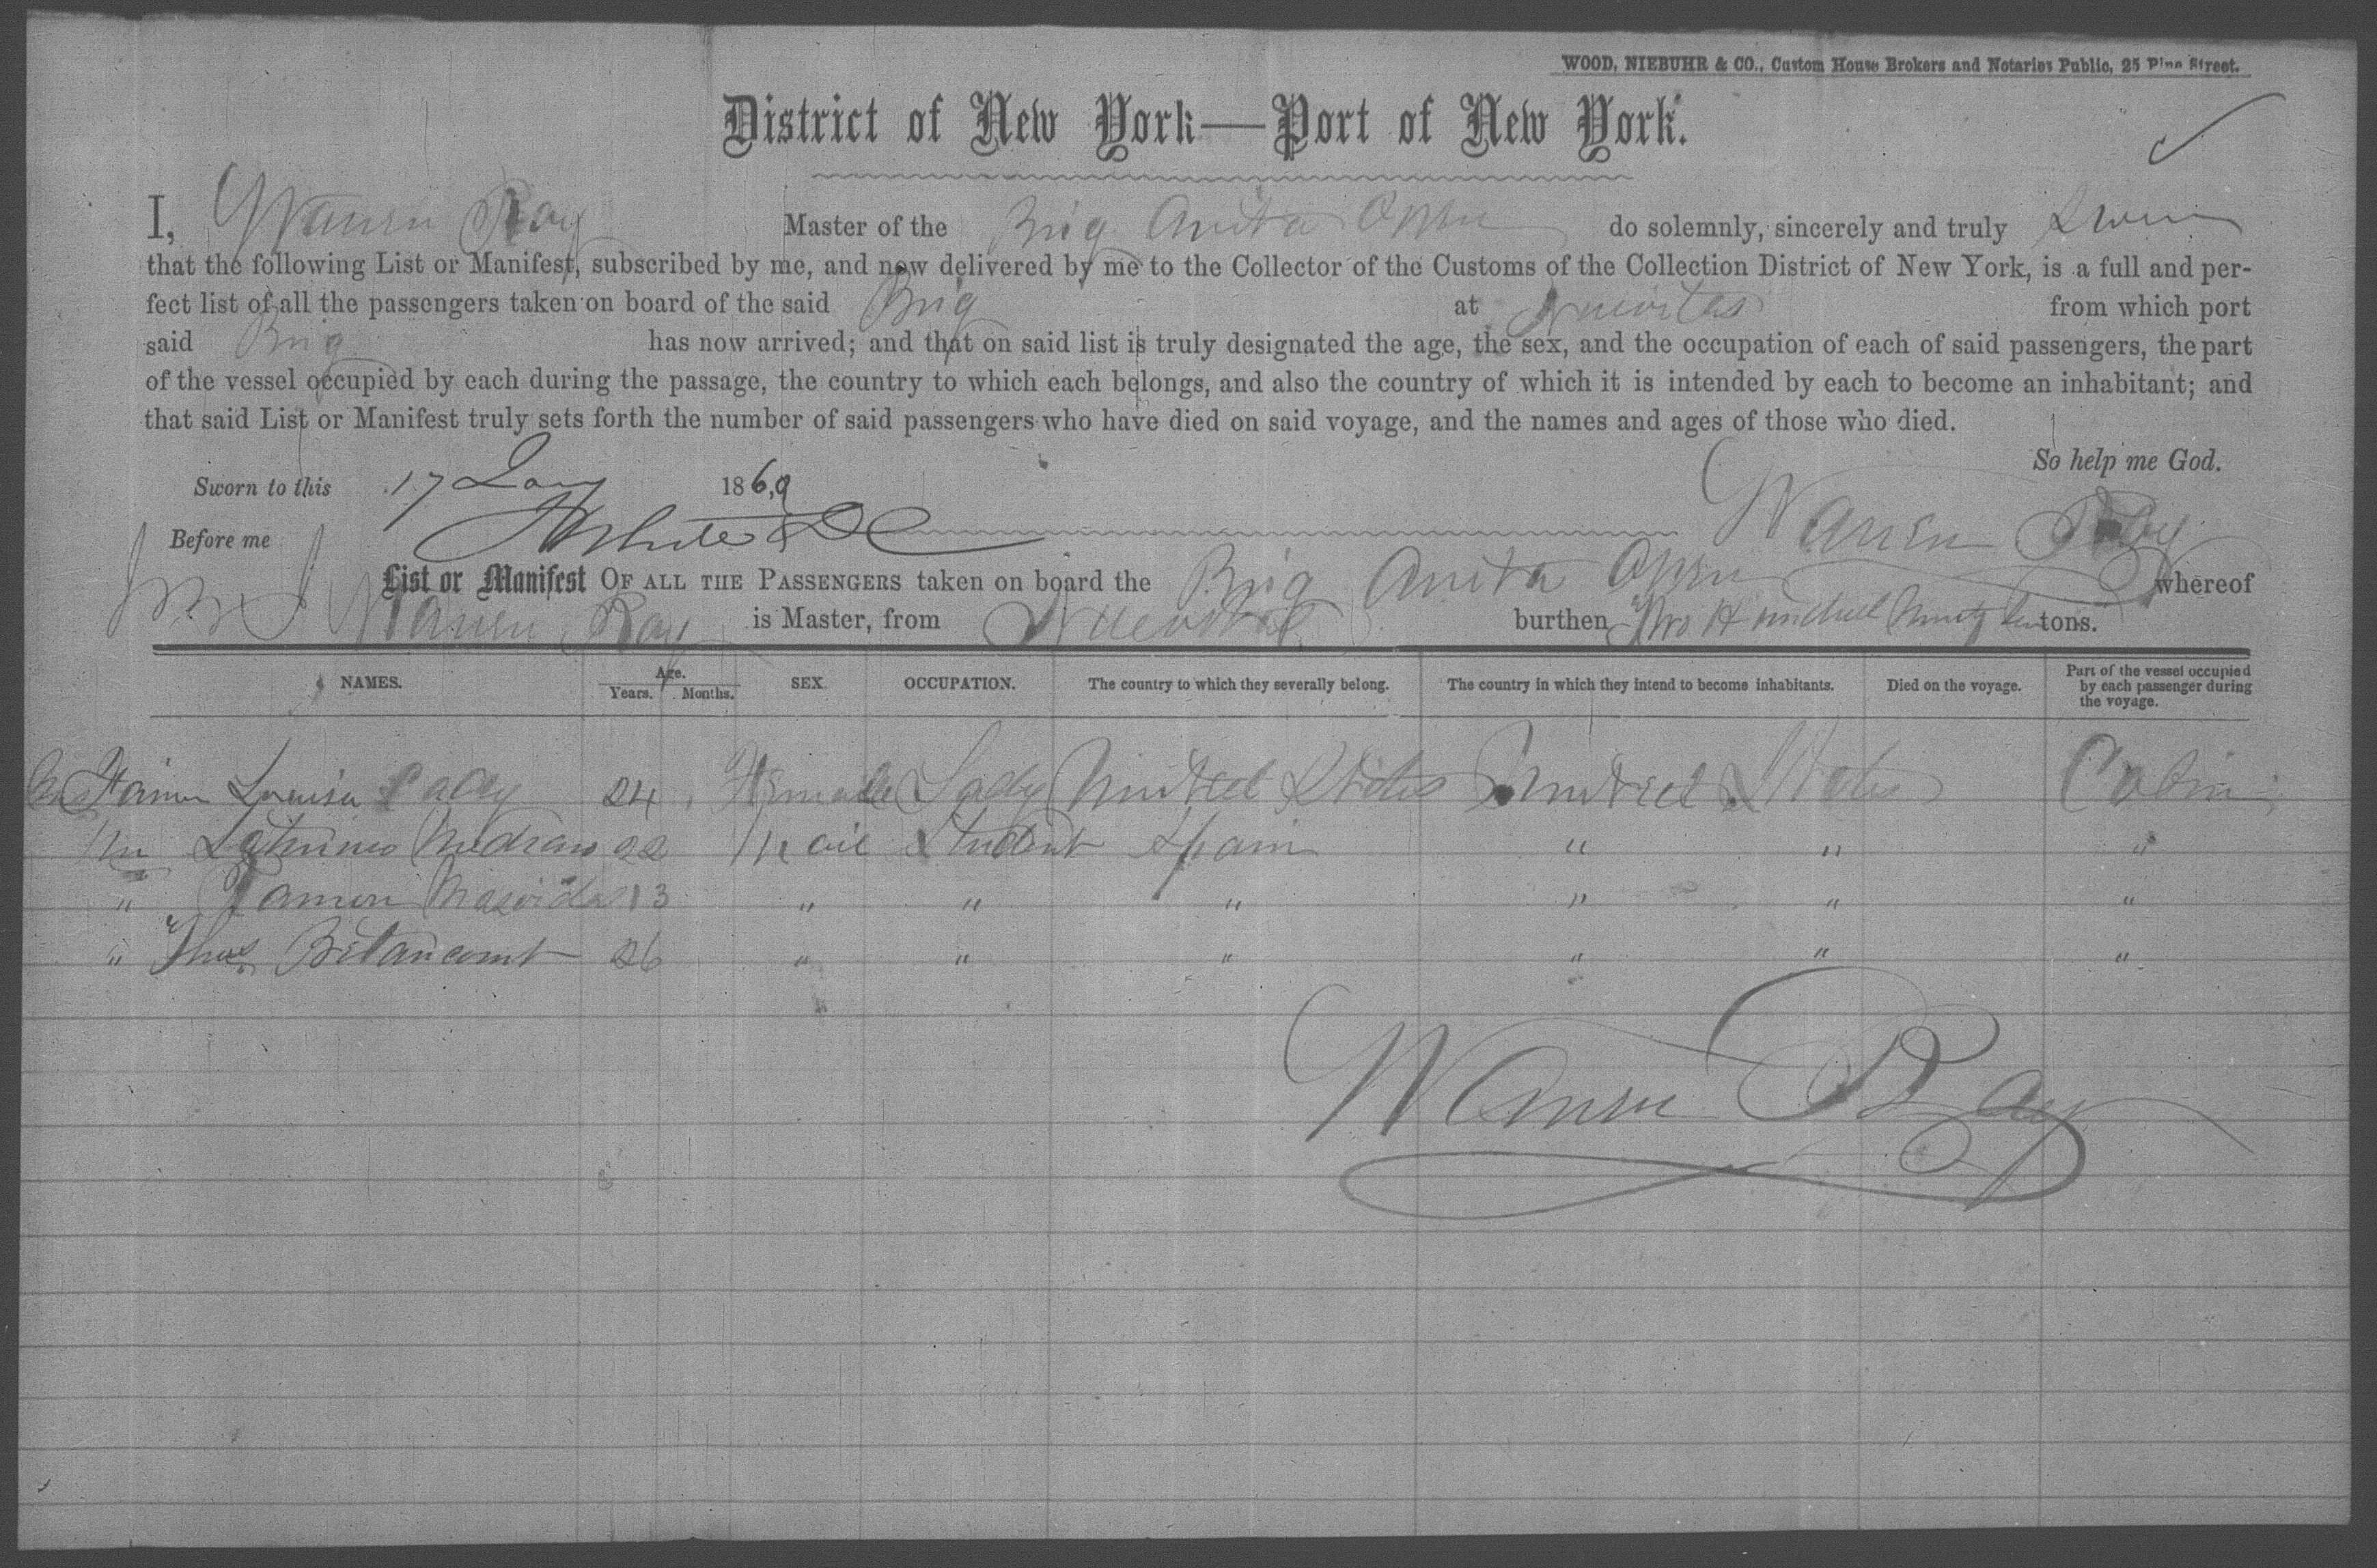 WOOD, NIEBUHR & CO., Custom House Brokers and Notaries Public, 25 Pine Street.
District of New York—Port of New York.
I, Warren Ray Master of the Brig Anita Owen do solemnly, sincerely and truly Swear
that the following List or Manifest, subscribed by me, and now delivered by me to the Collector of the Customs of the Collection District of New York, is a full and per-
fect list of all the passengers taken on board of the said Brig at Nuevitas from which port
said Brig has now arrived; and that on said list is truly designated the age, the sex, and the occupation of each of said passengers, the part
of the vessel occupied by each during the passage, the country to which each belongs, and also the country of which it is intended by each to become an inhabitant; and
that said List or Manifest truly sets forth the number of said passengers who have died on said voyage, and the names and ages of those who died.
So help me God.
Sworn to this 17 Jany 1869
Before me Warren Ray
List or Manifest OF ALL THE PASSENGERS taken on board the Brig Anita Owen whereof
Warren Ray is Master, from Nuevitas burthen Two Hundred Ninety tons.
NAMES. Age. Years. Months. SEX. OCCUPATION. The country to which they severally belong. The country in which they intend to become inhabitants. Died on the voyage. Part of the vessel occupied by each passenger during the voyage.
Louisa 24 Female Lady United States United States Cabin
Mr 22 Male Student Spain " " "
" Ramon 13 " " " " " "
" Thos Betancourt 26 " " " " " "
Warren Ray